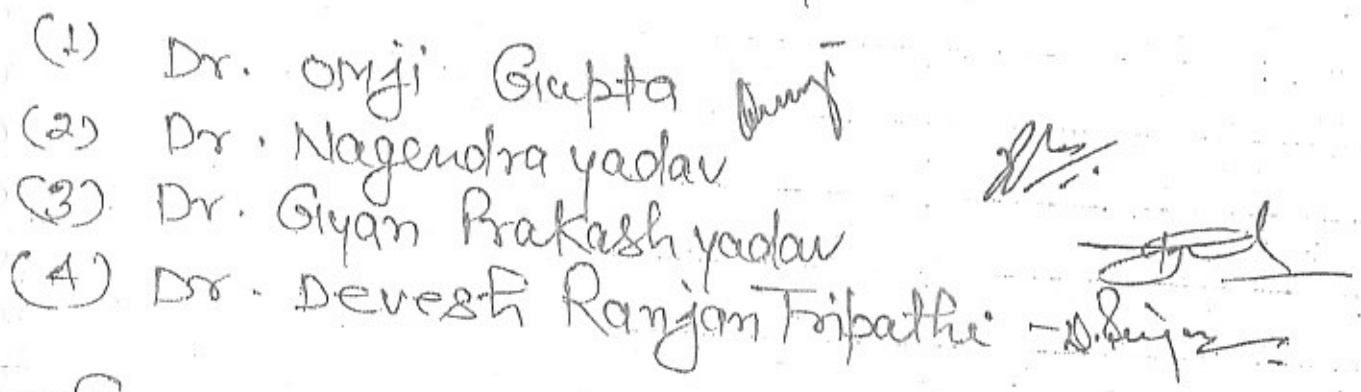 (1) Dr. OMji Gupta
(2) Dr. Nagendra yadav
(3) Dr. Gyan Prakash yadav
(4) Dr. Devesh Ranjan Tripathi -